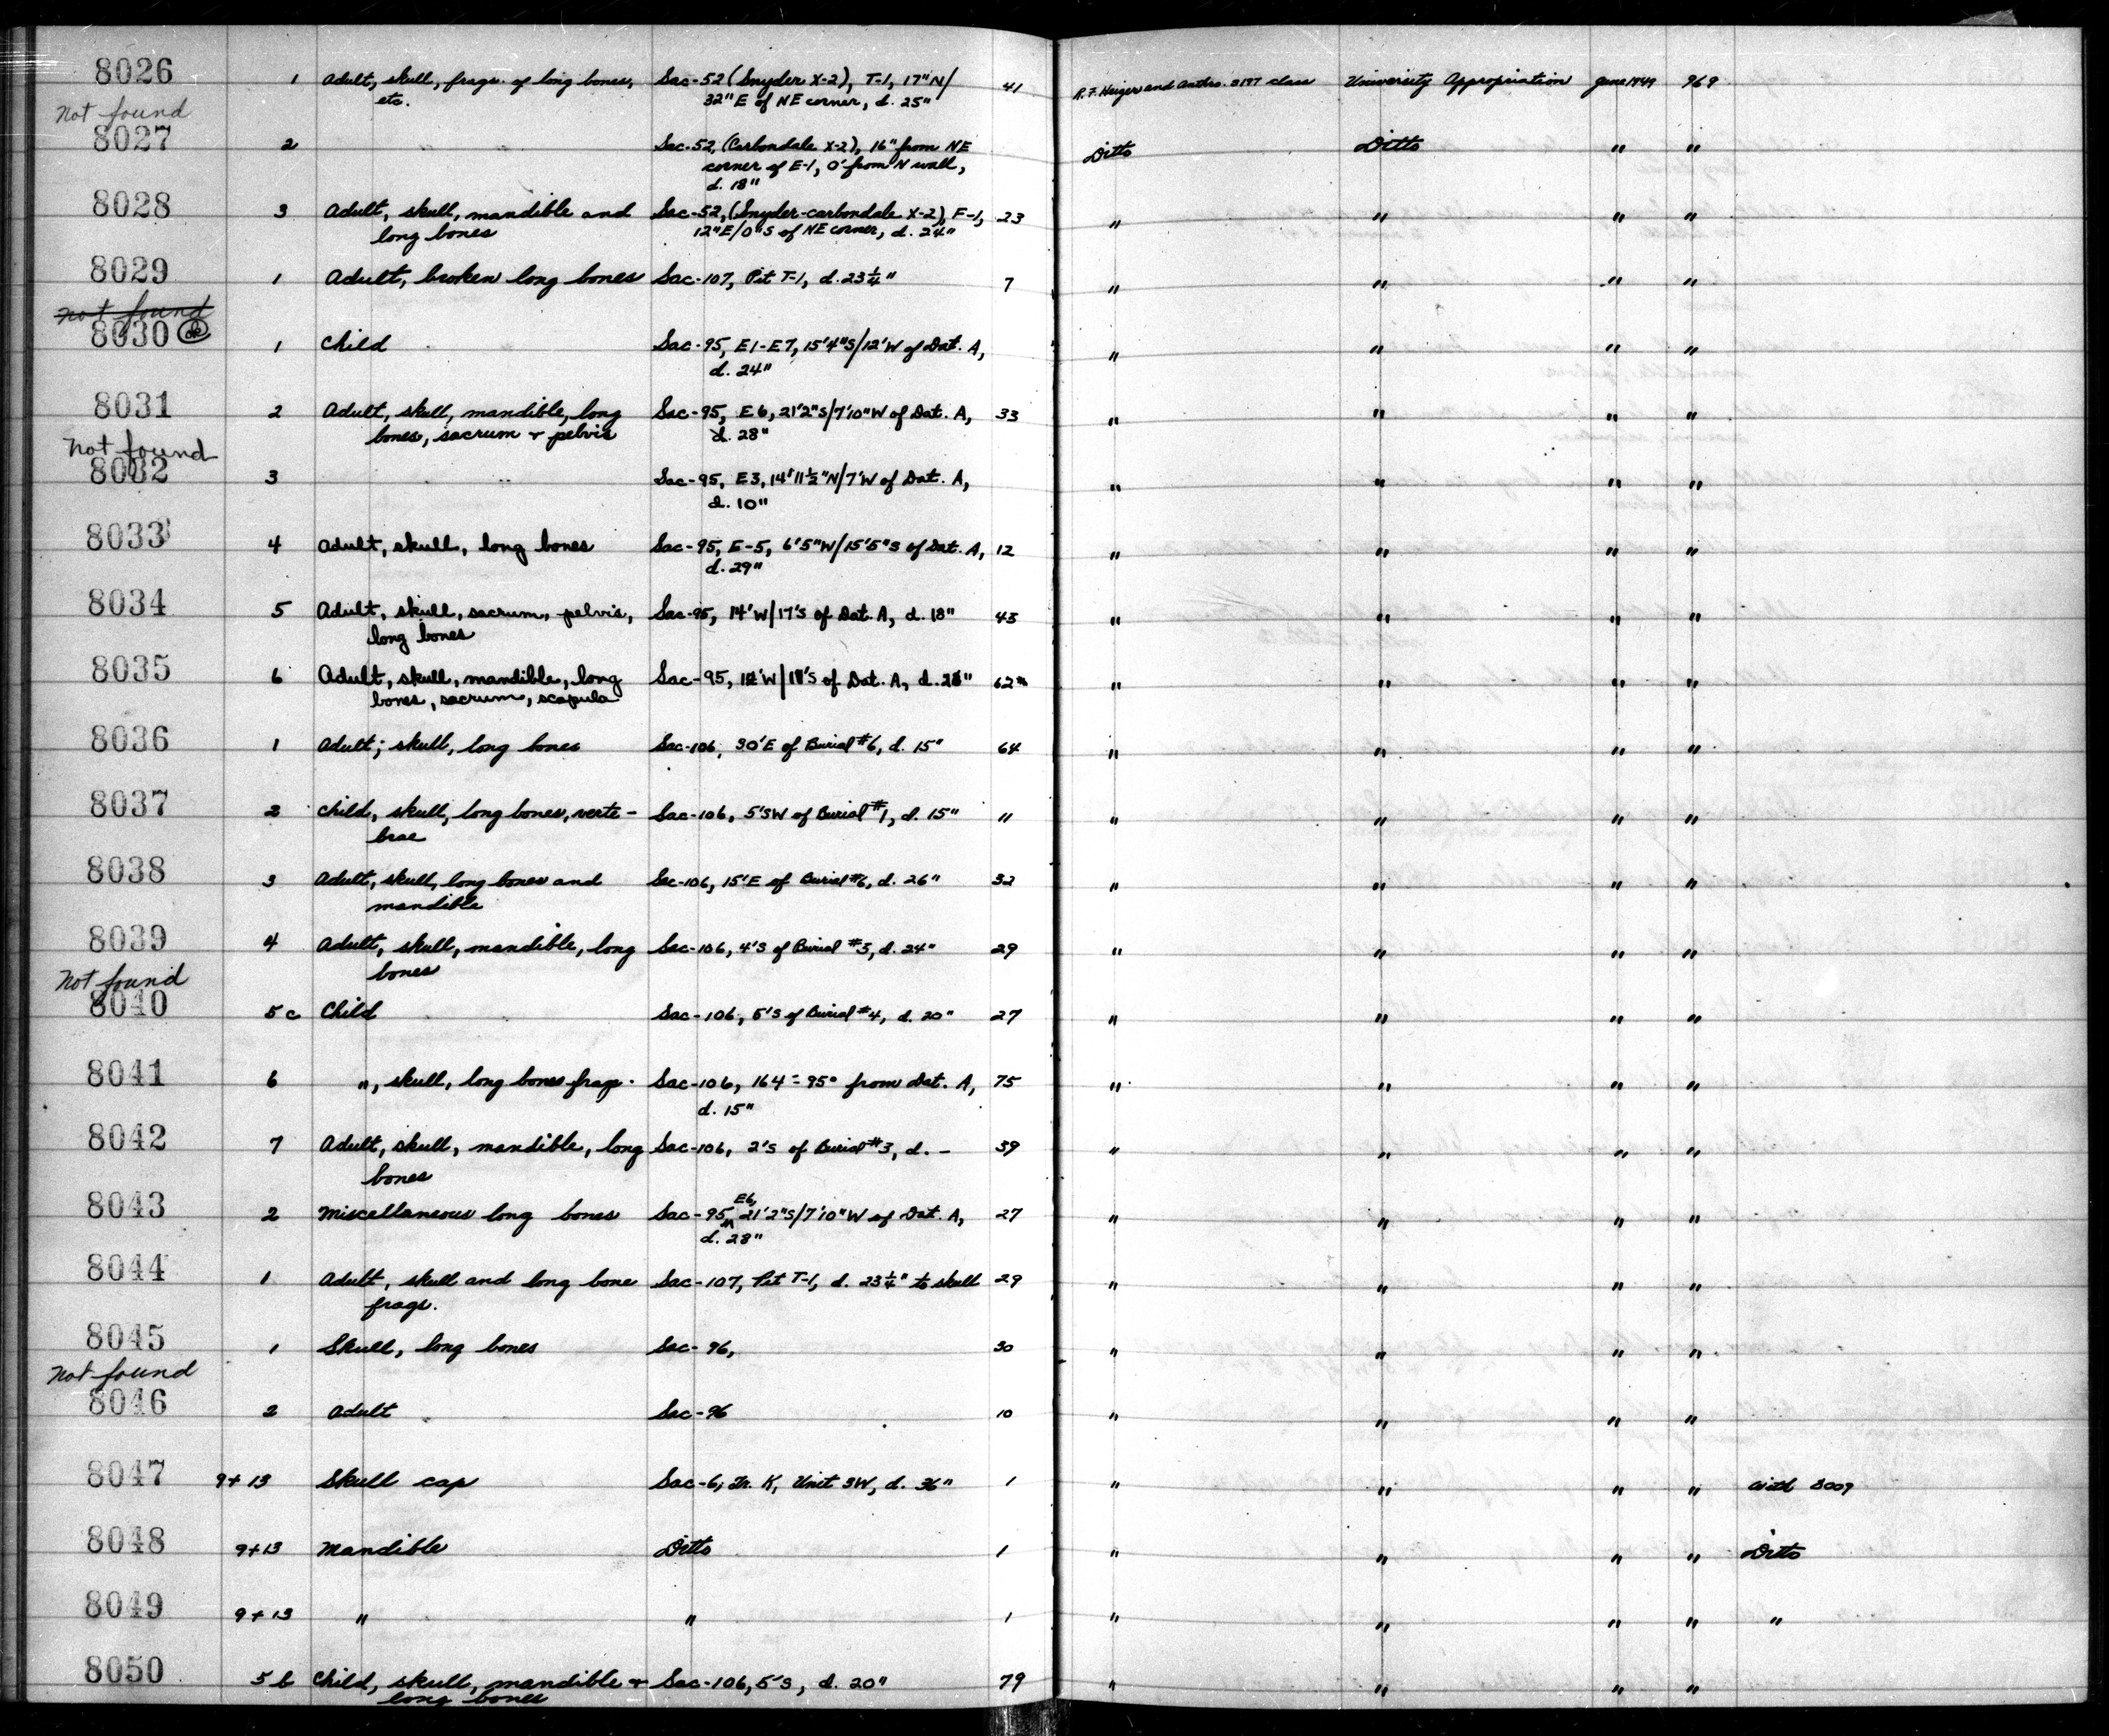 8026 1 Adult, skull, frags. of long bones, Sac-52 (Snyder X-2), T-1, 17"N/ 41 R.F. Heizer and Anthro. class University Appropriation June 1949 969
etc. 32"E of NE corner, d. 25"
Not found
8027 2 Sac-52, (Carbondale X-2), 16" from NE Ditto Ditto " "
corner of E-1, 0' from N wall,
d. 18"
8028 3 Adult, skull, mandible and Sac-52, (Snyder-carbondale X-2), F-1, 23 " " " "
long bones 12"E/0"S of NE corner, d. 24"
8029 1 Adult, broken long bones Sac-107, Pit T-1, d. 23¼" 7 " " " "
not found
8030 ok 1 Child Sac-95, E1-E7, 15'4"S/12'W of Dat. A, " " " "
d. 24"
8031 2 Adult, skull, mandible, long Sac-95, E6, 21'2"S/7'10"W of Dat. A, 33 " " " "
bones, sacrum + pelvis d. 28"
Not found
8032 3 Sac-95, E3, 14'11½"N/7'W of Dat. A, " " " "
d. 10"
8033 4 Adult, skull, long bones Sac-95, E-5, 6'5"W/15'5"S of Dat. A, 12 " " " "
d. 29"
8034 5 Adult, skull, sacrum, pelvis, Sac-95, 14'W/17'S of Dat. A, d. 18" 43 " " " "
long bones
8035 6 Adult, skull, mandible, long Sac-95, of Dat. A, d. 62 " " " "
bones, sacrum, scapula
8036 1 Adult; skull, long bones Sac-106, 30'E of Burial #6, d. 15" 64 " " " "
8037 2 Child, skull, long bones, verte- Sac-106, 5'SW of Burial #1, d. 15" 11 " " " "
brae
8038 3 Adult, skull, long bones and Sac-106, 15'E of Burial #6, d. 26" 32 " " " "
mandible
8039 4 Adult, skull, mandible, long Sac-106, 4'S of Burial #5, d. 24" 29 " " " "
bones
Not found
8040 5c Child Sac-106, 5'S of Burial #4, d. 20" 27 " " " "
8041 6 ", skull, long bones frags. Sac-106, 164 - 95° from Dat. A, 75 " " " "
d. 15"
8042 7 Adult, skull, mandible, long Sac-106, 2'S of Burial #3, d. - 39 " " " "
bones
8043 2 Miscellaneous long bones Sac-95, E6, 21'2"S/7'10"W of Dat. A, 27 " " " "
d. 28"
8044 1 Adult, skull and long bone Sac-107, Pit T-1, d. 23¼" to skull 29 " " " "
frags.
8045 1 Skull, long bones Sac-96, 30 " " " "
Not found
8046 2 Adult Sac-96 10 " " " "
8047 9+13 Skull cap Sac-6, Tr. K, Unit 3W, d. 36" 1 " " " " with 8009
8048 9+13 Mandible Ditto 1 " " " " Ditto
8049 9+13 " " 1 " " " " "
8050 5b Child, skull, mandible + Sac-106, 5'S, d. 20" 79 " " " "
long bones